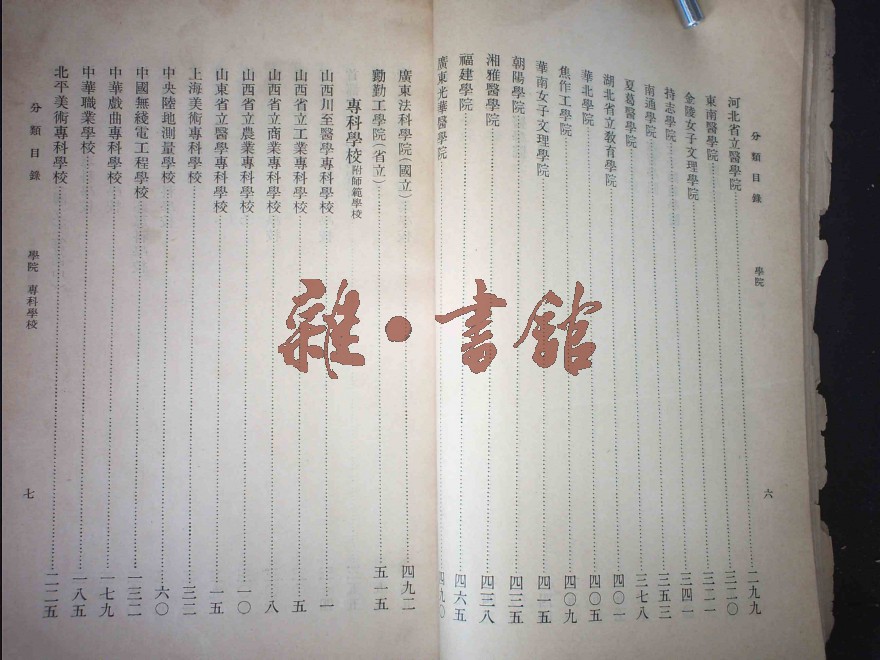 分類目錄 學院 六
河北省立醫學院……二九九
東南醫學院……三二〇
金陵女子文理學院……三二一
持志學院……三四一
南通學院……三五三
夏葛醫學院……三七八
湖北省立教育學院……四〇一
華北學院……四〇五
焦作工學院……四〇九
華南女子文理學院……四一五
朝陽學院……四三五
湘雅醫學院……四三八
福建學院……四六五
廣東光華醫學院……四九〇
廣東法科學院(國立)……四九二
勷勤工學院(省立)……五一五
專科學校 附師範學校
山西川至醫學專科學校……一
山西省立工業專科學校……五
山西省立商業專科學校……八
山西省立農業專科學校……一〇
山東省立醫學專科學校……一五
上海美術專科學校……三二
中央陸地測量學校……六〇
中國無綫電工程學校……一三二
中華戲曲專科學校……一七九
中華職業學校……一八五
北平美術專科學校……二二五
分類目錄 學院 專科學校 七
雜·書館